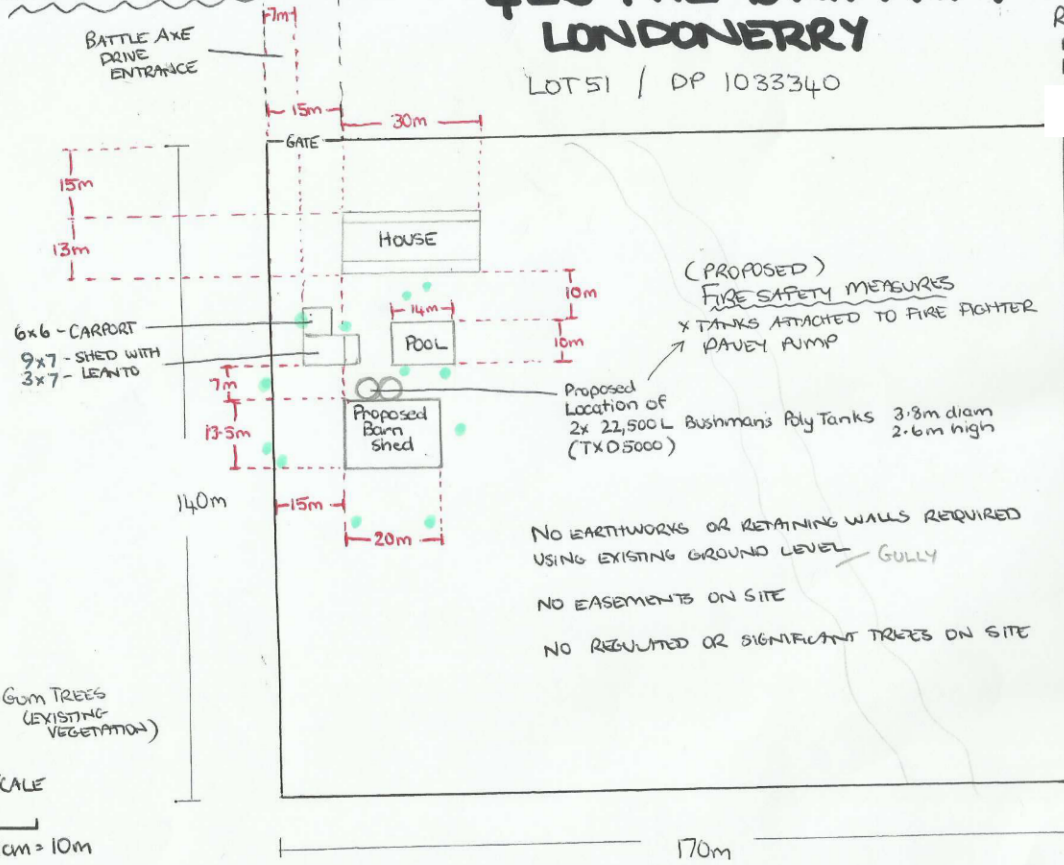 LONDONERRY
LOT 51 / DP 1033340
7m
BATTLE AXE
DRIVE
ENTRANCE
15m
30m
GATE
15m
13m
HOUSE
10m
14m
10m
POOL
6x6 - CARPORT
9x7 - SHED WITH
3x7 - LEANTO
7m
13.5m
Proposed
Barn
Shed
140m
15m
20m
(PROPOSED)
FIRE SAFETY MEASURES
X TANKS ATTACHED TO FIRE FIGHTER
DAVEY PUMP
Proposed
Location of
2x 22,500L Bushman's Poly Tanks 3.8m diam
(TXD5000) 2.6m high
NO EARTHWORKS OR RETAINING WALLS REQUIRED
USING EXISTING GROUND LEVEL
GULLY
NO EASEMENTS ON SITE
NO REGULATED OR SIGNIFICANT TREES ON SITE
GUM TREES
(EXISTING
VEGETATION)
CALE
cm = 10m
170m